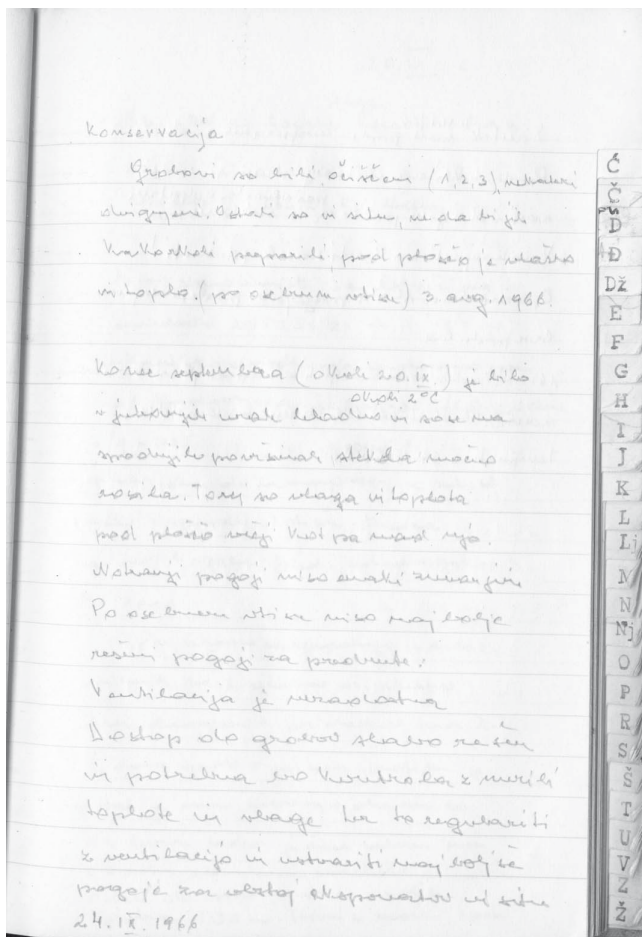 Konservacija
Grobovi so bili očiščeni (1,2,3), nekateri
dvignjeni. Ostali so in situ, ne da bi jih
kakorkoli preparirali, pod ploščo je vlažno
in toplo. (po osebnem vtisu) 3 avg. 1966.
Konec septembra (okoli 20. IX.) je bilo
okoli 2°C
v jutranjih urah hladno in so se na
spodnjih površinah stekla močno
rosila. Torej so vlaga in toplota
pod ploščo večji kot pa nad njo.
Notranji pogoji niso enaki zunanjim
Po osebnem vtisu niso najbolje
rešeni pogoji za predmete.
Ventilacija je nezadostna
Dostop do grobov slabo rešen
in potrebna bo kontrola z merili
toplote in vlage ter to regulirati
z ventilacijo in ustvariti najboljše
pogoje za obstoj eksponatov in situ
24. IX. 1966
Ć
Č
D
Đ
Dž
E
F
G
H
I
J
K
L
Lj
M
N
Nj
O
P
R
S
Š
T
U
V
Z
Ž